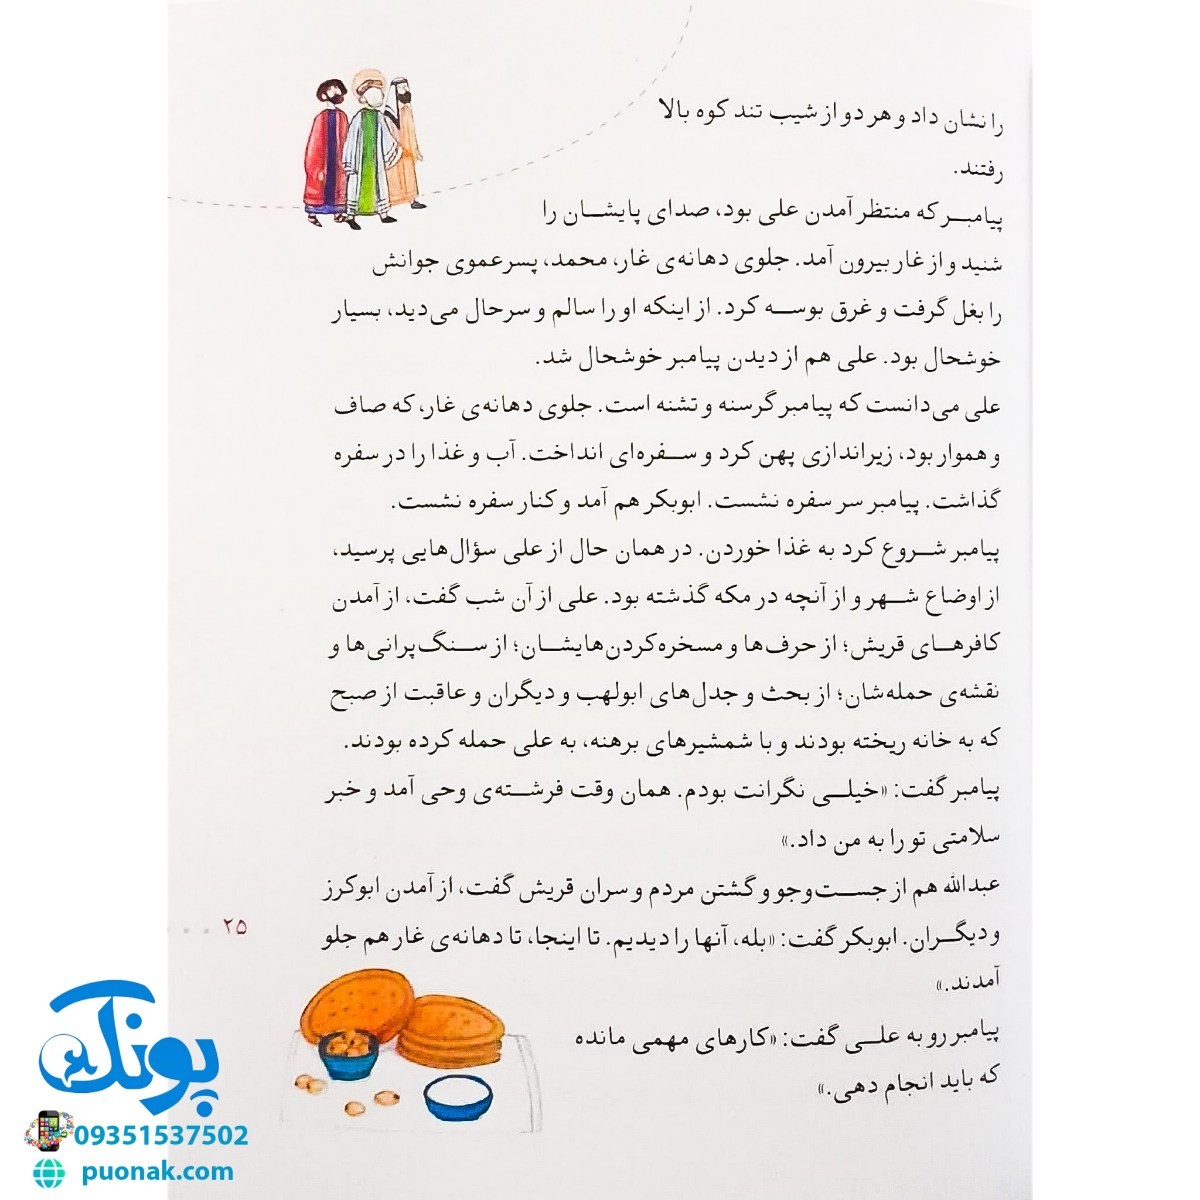 را نشان داد و هر دو از شیب تند کوه بالا
رفتند.
پیامبر که منتظر آمدن علی بود، صدای پایشان را
شنید و از غار بیرون آمد. جلوی دهانه‌ی غار، محمد، پسرعموی جوانش
را بغل گرفت و غرق بوسه کرد. از اینکه او را سالم و سرحال می‌دید، بسیار
خوشحال بود. علی هم از دیدن پیامبر خوشحال شد.
علی می‌دانست که پیامبر گرسنه و تشنه است. جلوی دهانه‌ی غار، که صاف
و هموار بود، زیراندازی پهن کرد و سفره‌ای انداخت. آب و غذا را در سفره
گذاشت. پیامبر سر سفره نشست. ابوبکر هم آمد و کنار سفره نشست.
پیامبر شروع کرد به غذا خوردن. در همان حال از علی سؤال‌هایی پرسید،
از اوضاع شهر و از آنچه در مکه گذشته بود. علی از آن شب گفت، از آمدن
کافرهای قریش؛ از حرف‌ها و مسخره‌کردن‌هایشان؛ از سنگ‌پرانی‌ها و
نقشه‌ی حمله‌شان؛ از بحث و جدل‌های ابولهب و دیگران و عاقبت از صبح
که به خانه ریخته بودند و با شمشیرهای برهنه، به علی حمله کرده بودند.
پیامبر گفت: «خیلی نگرانت بودم. همان وقت فرشته‌ی وحی آمد و خبر
سلامتی تو را به من داد.»
عبدالله هم از جست‌وجو و گشتن مردم و سران قریش گفت، از آمدن ابوکرز
و دیگران. ابوبکر گفت: «بله، آنها را دیدیم. تا اینجا، تا دهانه‌ی غار هم جلو
آمدند.»
پیامبر رو به علی گفت: «کارهای مهمی مانده
که باید انجام دهی.»
۲۵
پونک
09351537502
puonak.com